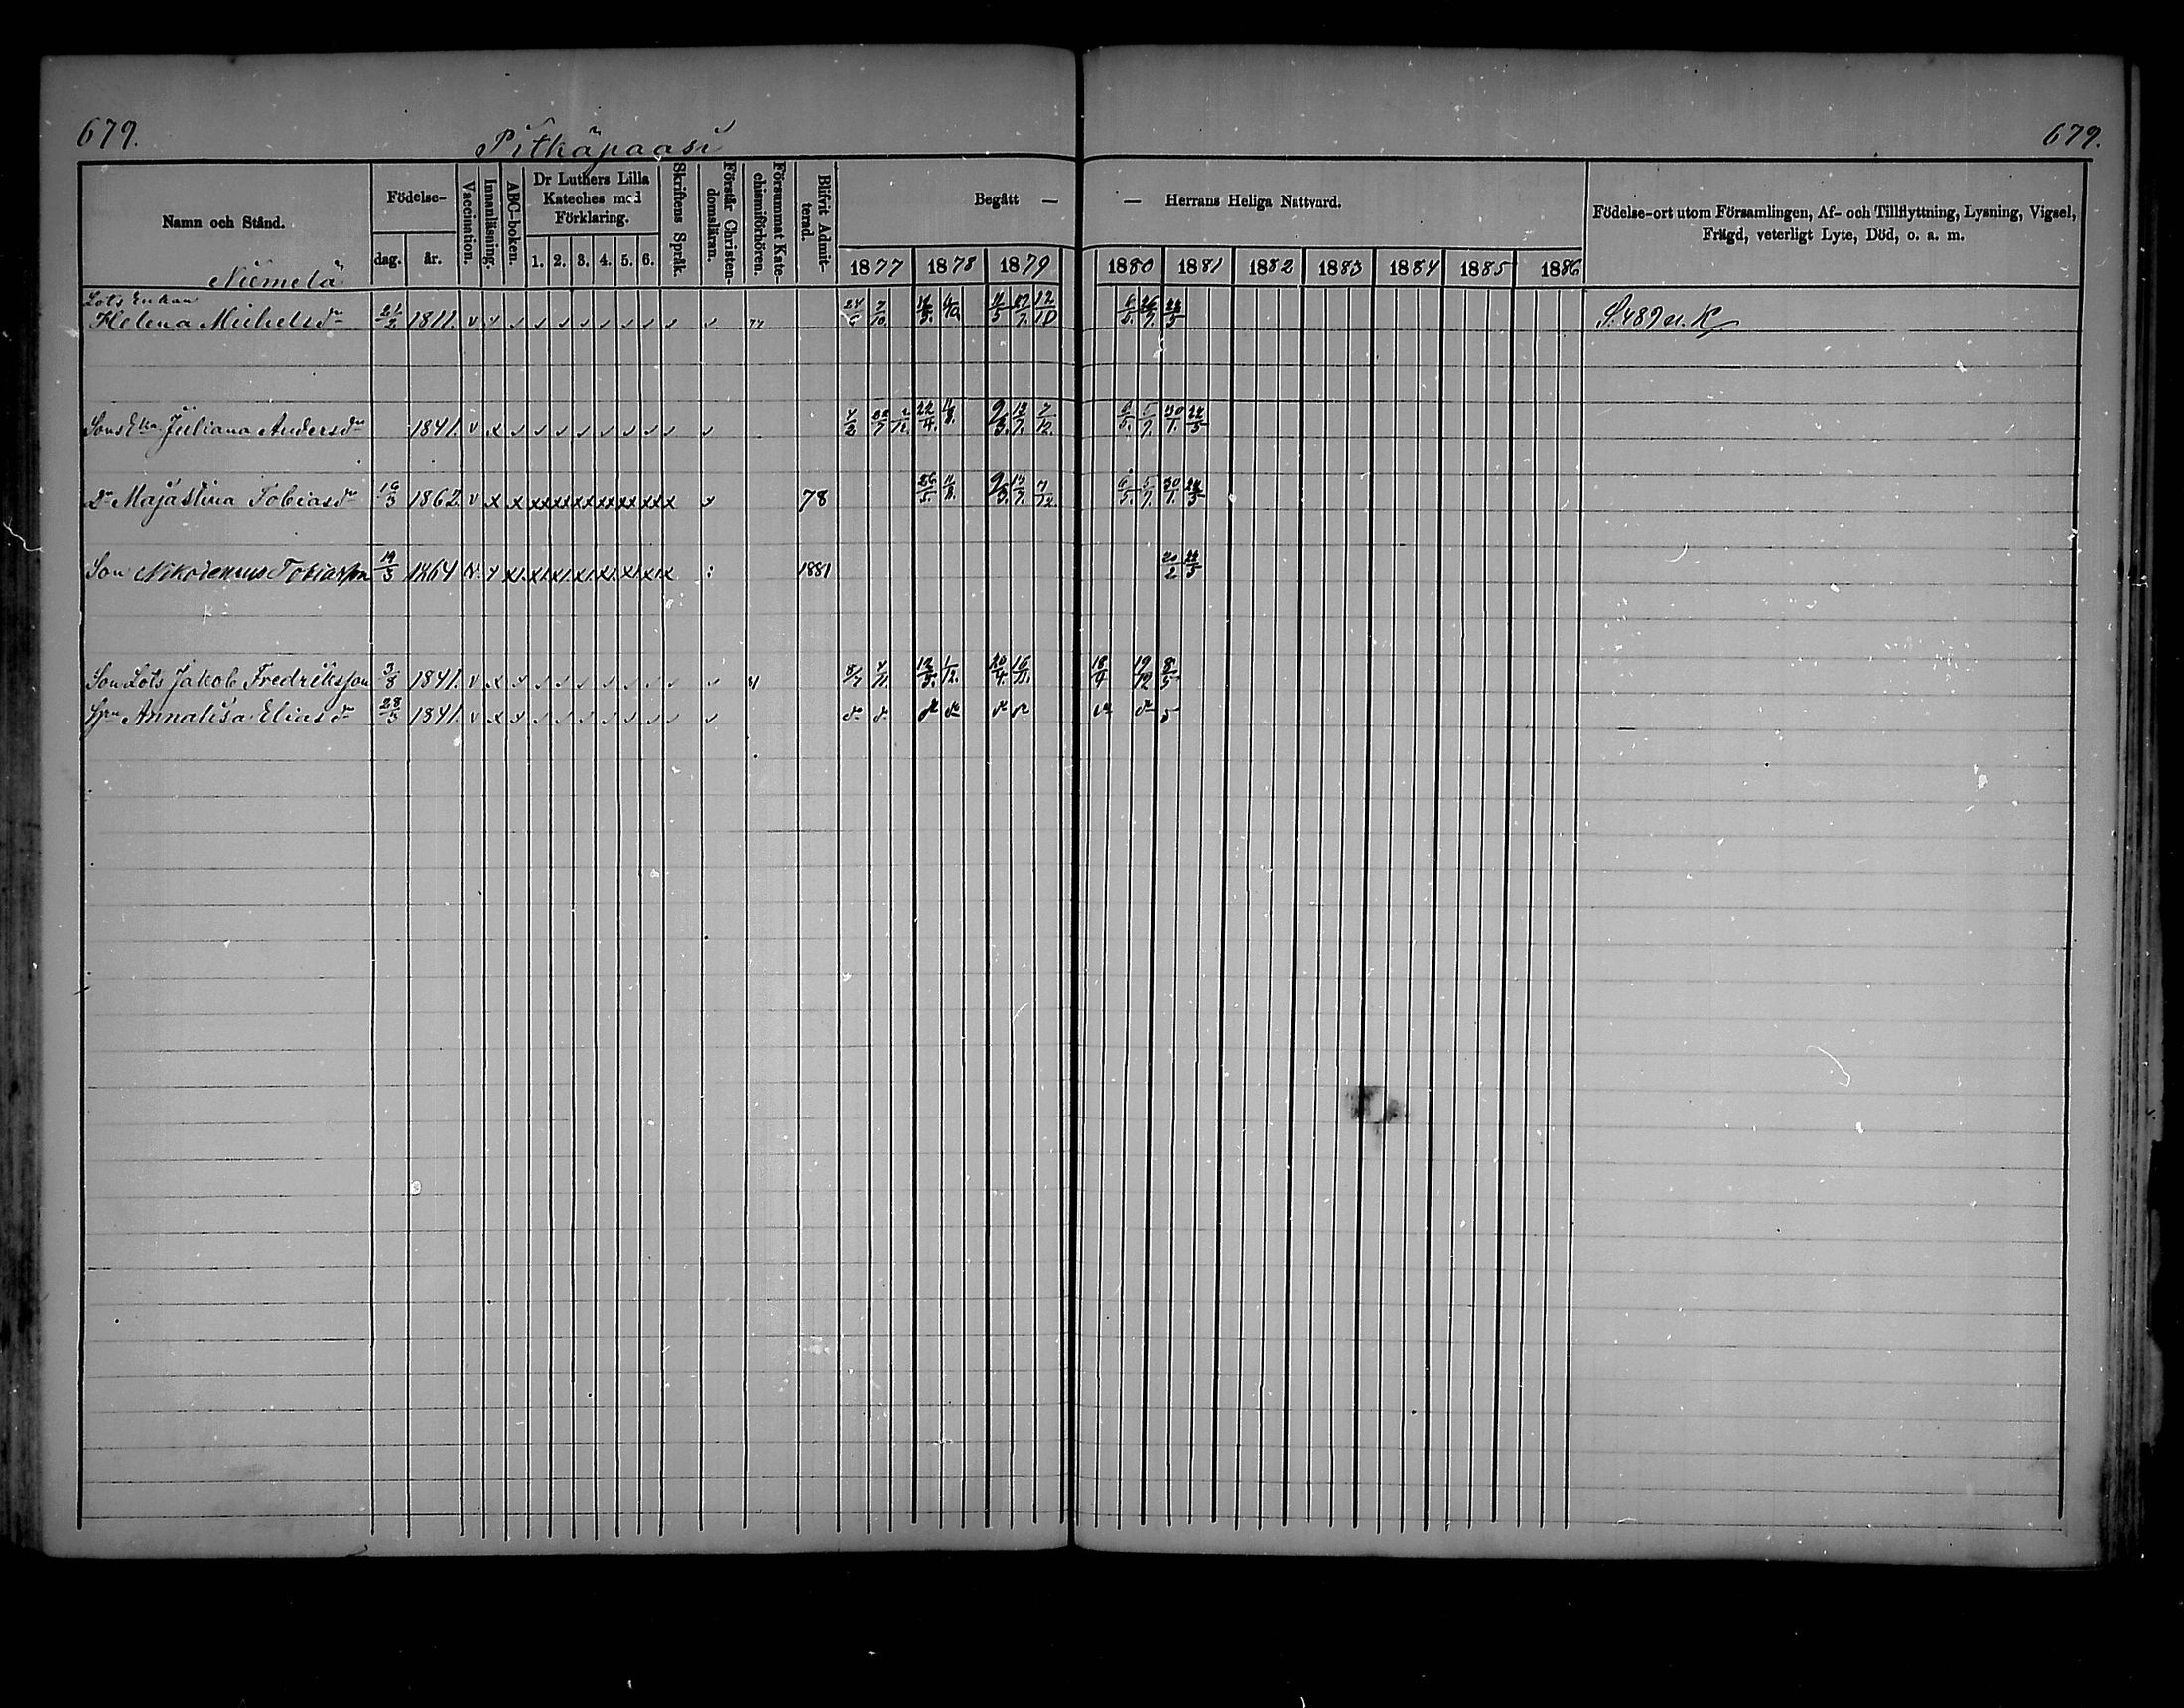 679.
Pitkäpaasi
679.
Namn och Stånd.
Födelse-
dag.
år.
Vaccination.
Innanläsning.
ABC-boken.
Dr Luthers Lilla
Kateches med
Förklaring.
1. 2. 3. 4. 5. 6.
Skriftens Språk.
Förstår Christen-
domsläran.
Försummat Kate-
chismiförhören.
Blifvit Admit-
terad.
Begått — — Herrans Heliga Nattvard.
1877 1878 1879 1880 1881 1882 1883 1884 1885 1886
Födelse-ort utom Församlingen, Af- och Tillflyttning, Lysning, Vigsel,
Frägd, veterligt Lyte, Död, o. a. m.
Niemelä
Lots Enkan
Helena Michelsdr 21/2 1811. v 77 24/6 7/10 4/10 27/7. 12/10 6/5. 26/7. 22/5 S. 489 n. K
Sons Eka Juliana Andersdr 1841. v x 22/7 2/12 22/4. 9/3. 13/7. 7/12. 6/5. 5/7. 30/1. 22/5
Dr Majastina Tobiasdr 16/3 1862. v x x 78 26/5. 9/3. 13/7. 7/12. 6/5. 5/7. 30/1. 22/5
Son Nikodemus Tobiasson 19/3 1864 1881 20/2 22/5
Son Lots Jakob Fredriksson 3/8 1841. v x 81 4/11. 13/3. 1/12. 20/4. 16/11. 18/4 19/12 8/5
Hn Annalisa Eliasdr 28/3 1841. v x